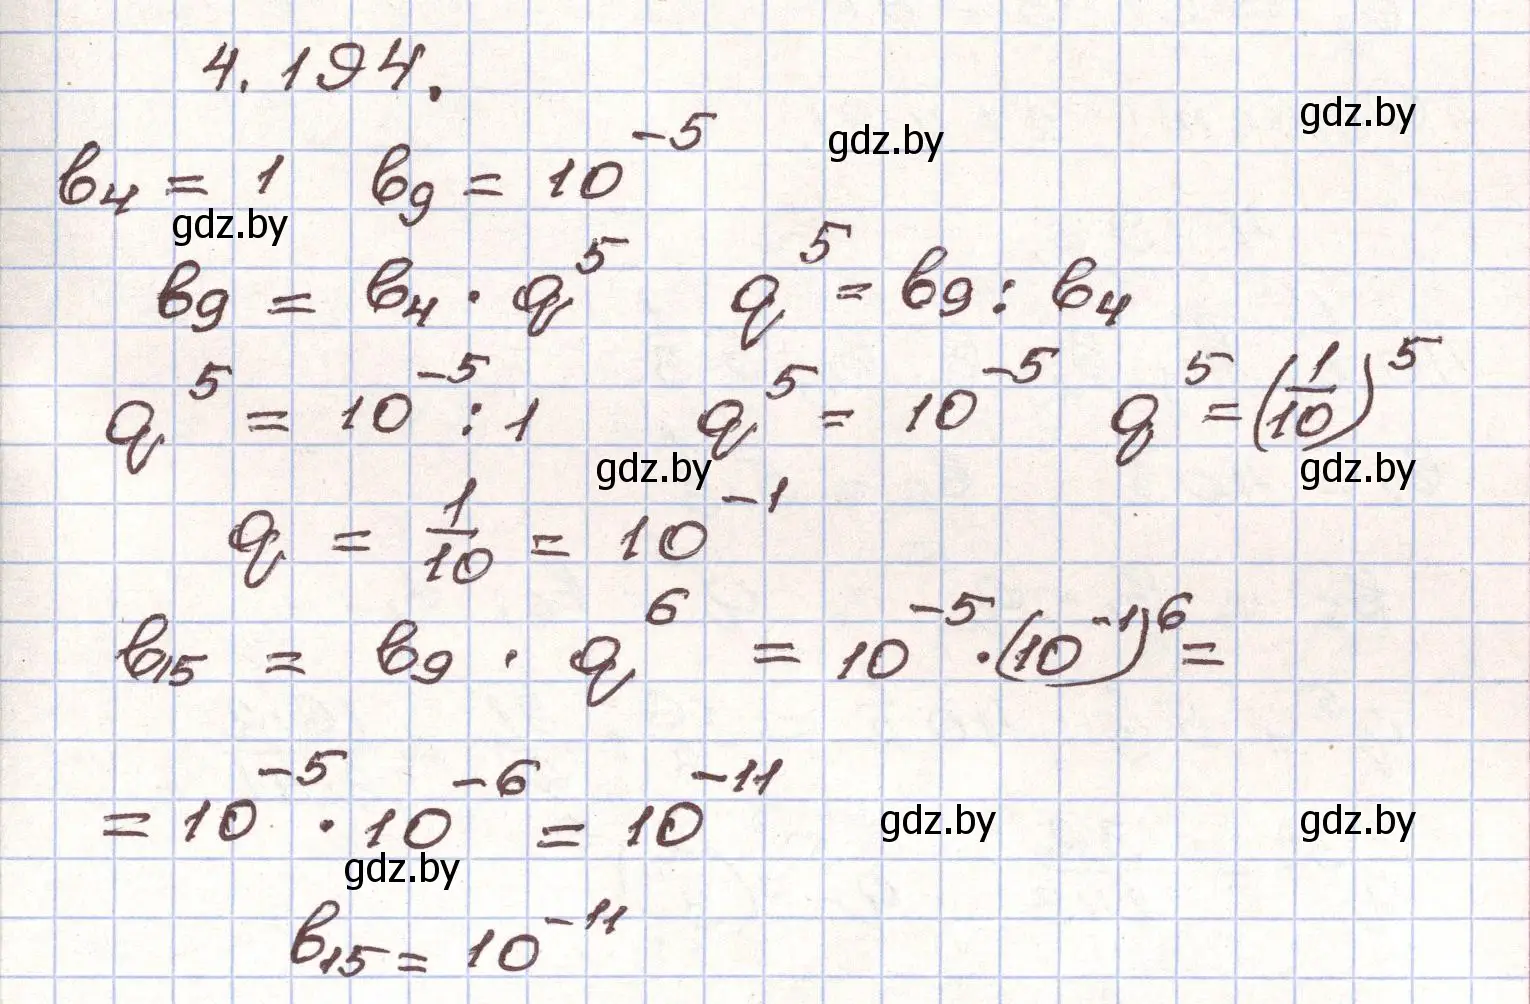 4.194.
gdz.by
b₄ = 1   b₉ = 10⁻⁵   gdz.by
gdz.by
b₉ = b₄ · q⁵   q⁵ = b₉ : b₄
q⁵ = 10⁻⁵ : 1   q⁵ = 10⁻⁵   q⁵ = (1/10)⁵
gdz.by   gdz.by
q = 1/10 = 10⁻¹
b₁₅ = b₉ · q⁶ = 10⁻⁵ · (10⁻¹)⁶ =
= 10⁻⁵ · 10⁻⁶ = 10⁻¹¹   gdz.by   gdz.by
gdz.by
b₁₅ = 10⁻¹¹